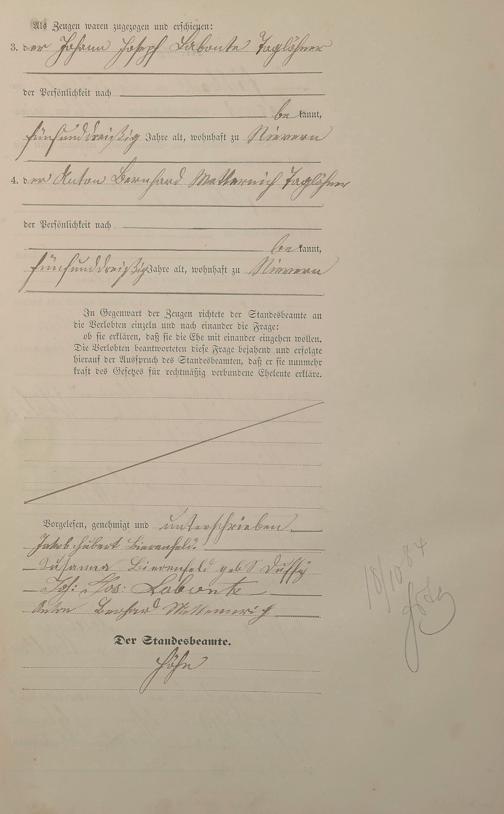 Als Zeugen waren zugezogen und erschienen:
3. der Johann Joseph Labonte Taglöhner
der Persönlichkeit nach
be kannt,
fünfunddreißig Jahre alt, wohnhaft zu Nievern
4. der Anton Bernhard Metternich Taglöhner
der Persönlichkeit nach
be kannt,
fünfunddreißig Jahre alt, wohnhaft zu Nievern
In Gegenwart der Zeugen richtete der Standesbeamte an
die Verlobten einzeln und nach einander die Frage:
ob sie erklären, daß sie die Ehe mit einander eingehen wollen.
Die Verlobten beantworteten diese Frage bejahend und erfolgte
hierauf der Ausspruch des Standesbeamten, daß er sie nunmehr
kraft des Gesetzes für rechtmäßig verbundene Eheleute erkläre.
Vorgelesen, genehmigt und unterschrieben
Jakob Hubert Bierenfeld.
Susanna Bierenfeld geb. Duffy
Joh: Jos: Labonte
Anton Bernhard Metternich
Der Standesbeamte.
Höhn
18/10 84